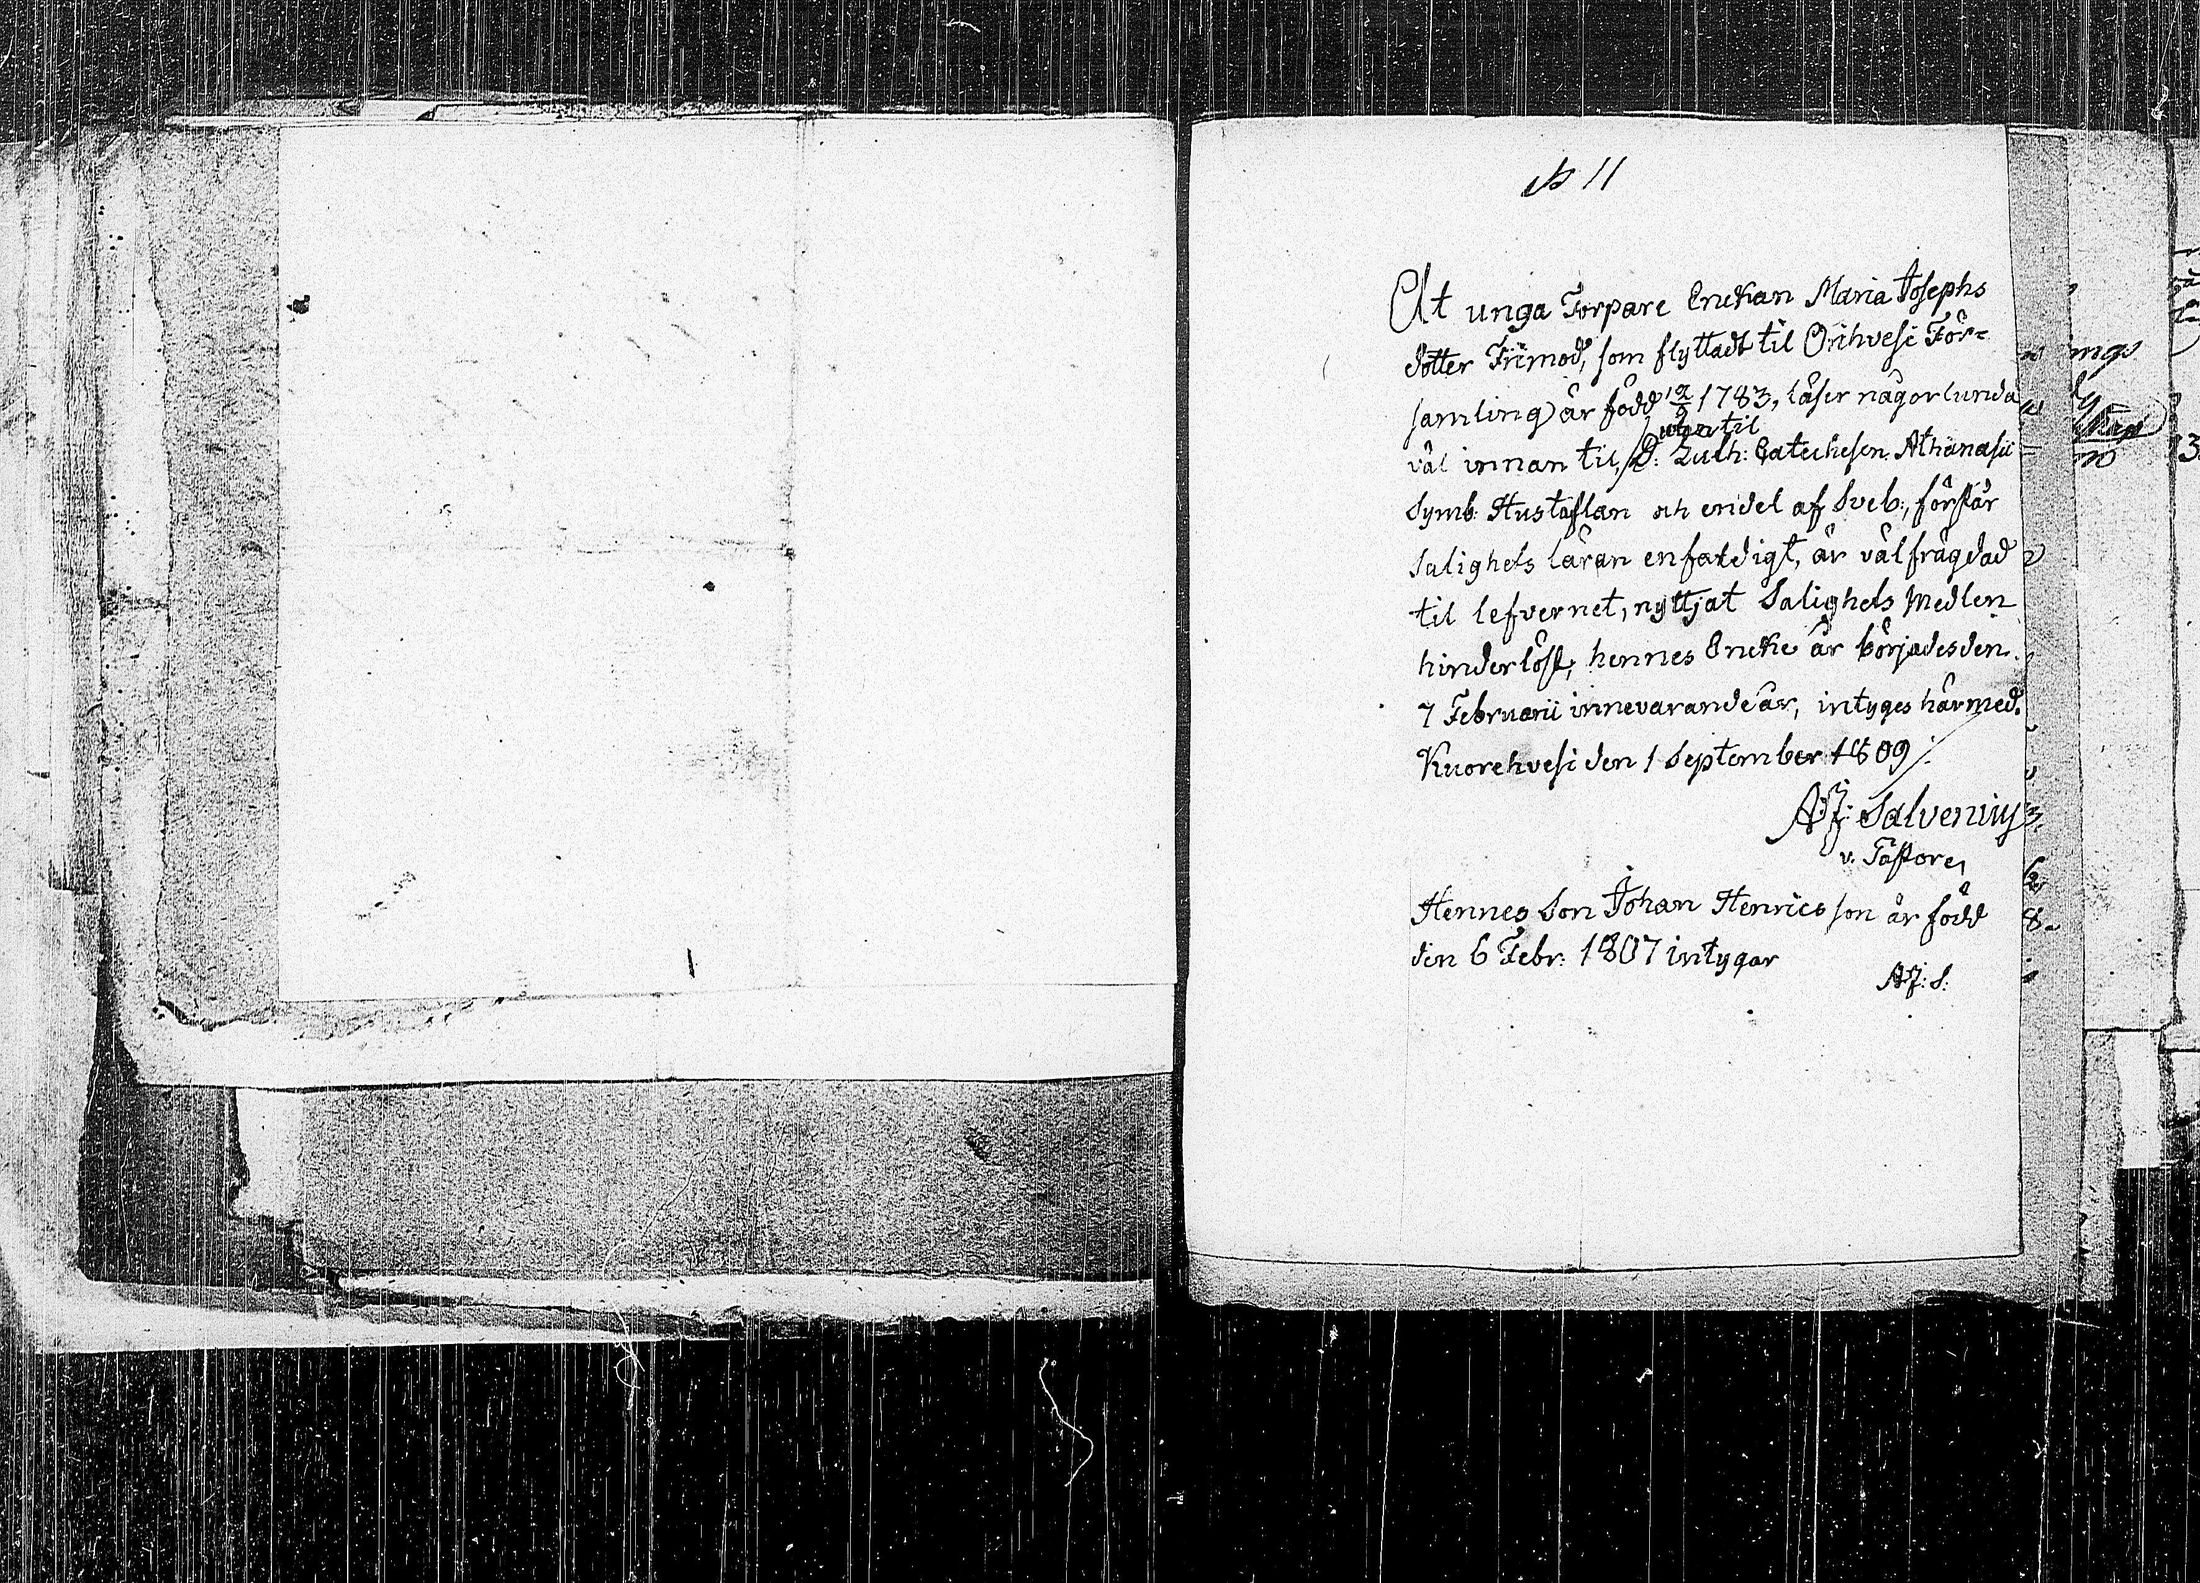 № 11
At unga Torpare Enckan Maria Josephs
dotter Frimod, som flyttadt til Orihvesi För-
samling är född 12/9 1783, läser någorlunda
väl innan til, utan til D: Luth: Catechesen Athanasii
Symb: Hustaflan och endel af Sveb:, förstår
Salighets läran enfaldigt, är välfrägdad
til lefvernet, nyttjat Salighets Medlen
hinderlöst, hennes Encke år börjades den
7 Februarii innevarande år, intyges härmed.
Kuorehvesi den 1 September 1809
AJ: Salvenius
v. Pastore,
Hennes Son Johan Henricsson är född
den 6 Febr: 1807 intygar
AJ: S: